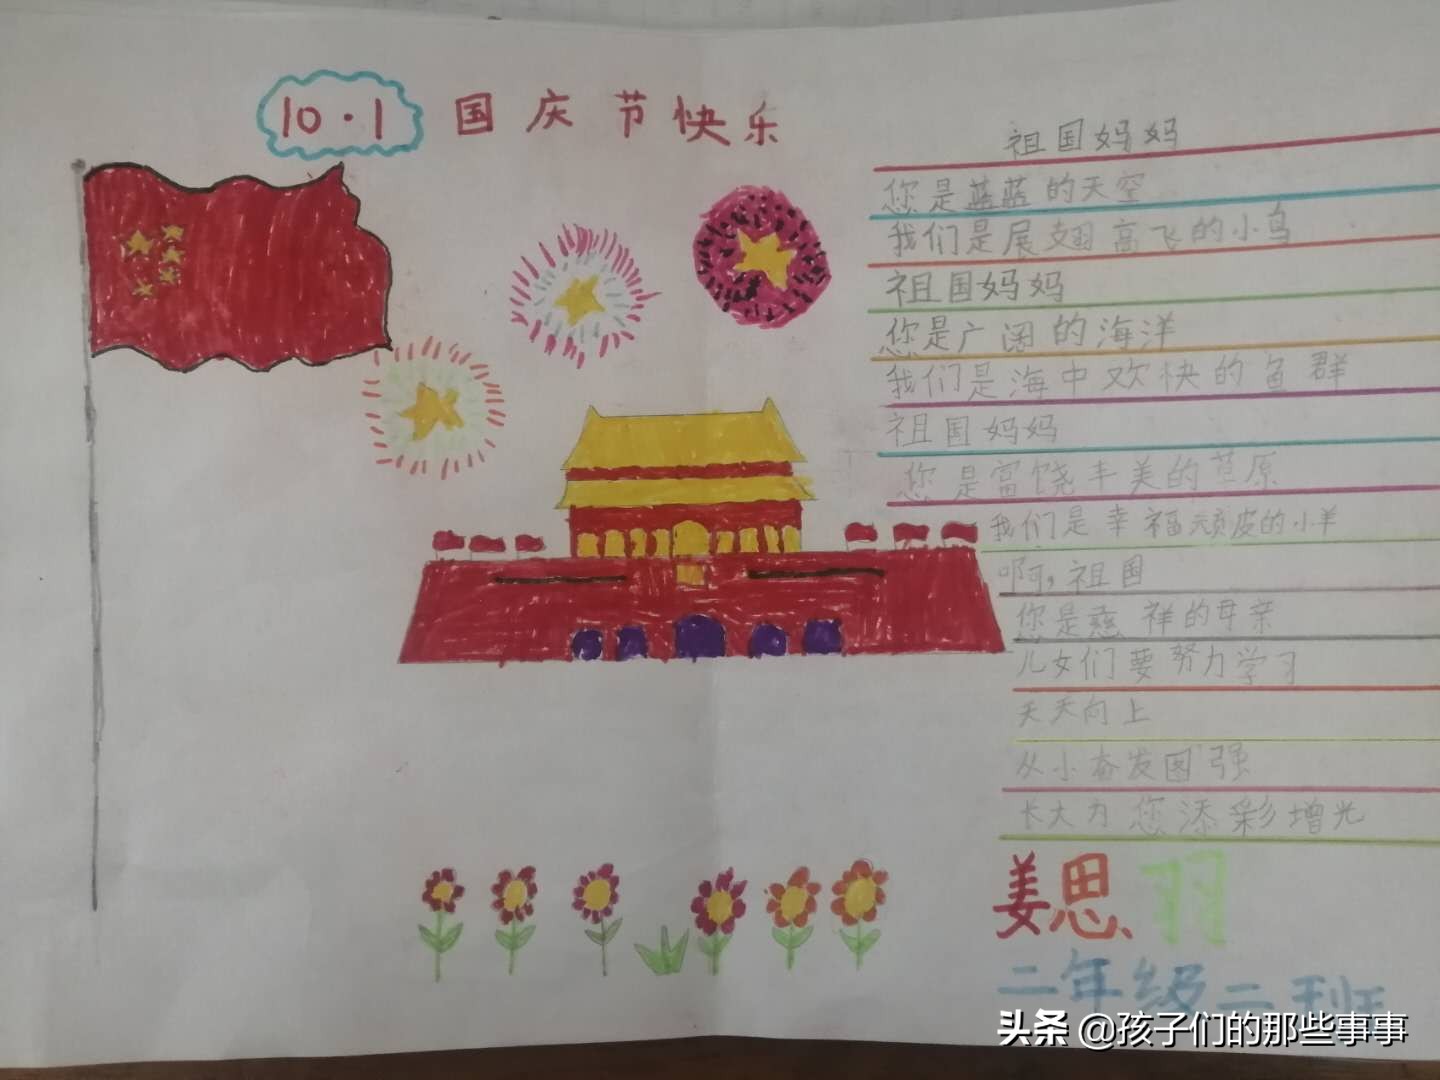 10·1 国庆节快乐
祖国妈妈
您是蓝蓝的天空
我们是展翅高飞的小鸟
祖国妈妈
您是广阔的海洋
我们是海中欢快的鱼群
祖国妈妈
您是富饶丰美的草原
我们是幸福顽皮的小羊
啊,祖国
您是慈祥的母亲
儿女们要努力学习
天天向上
从小奋发图强
长大为您添彩增光
姜思羽
二年级二班
头条 @孩子们的那些事事